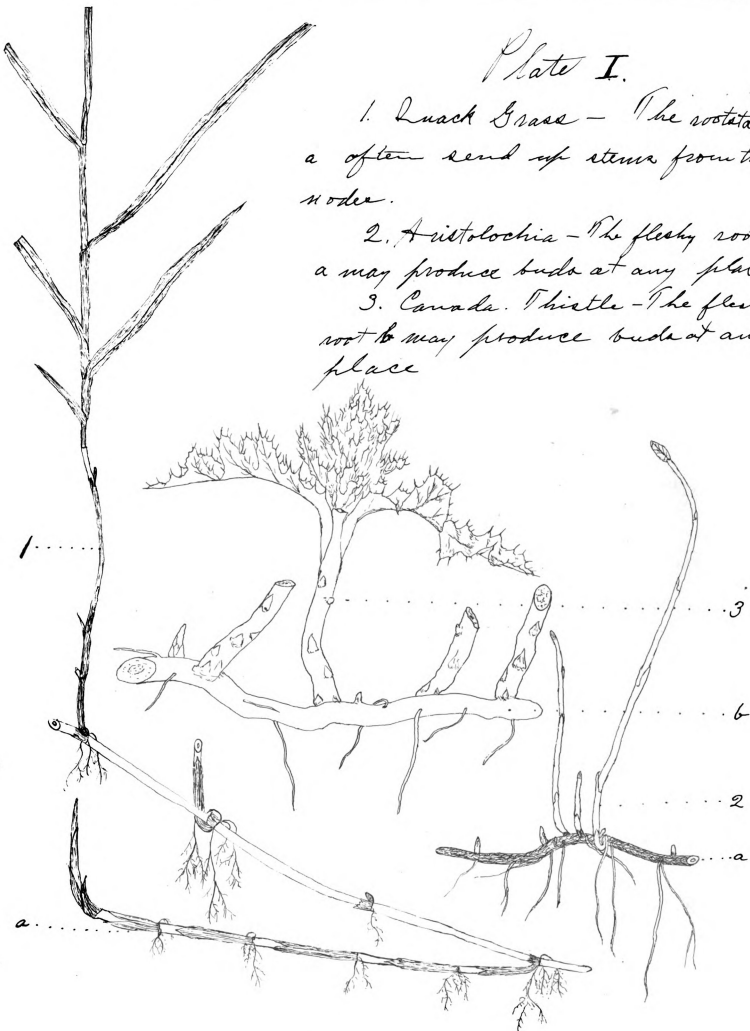 Plate I.
1. Quack Grass – The rootsta
a often send up stems from t
nodes.
2. Aristolochia – The fleshy roo
a may produce buds at any plac
3. Canada. Thistle – The fles
root b may produce buds at an
place
1
3
b
2
a
a